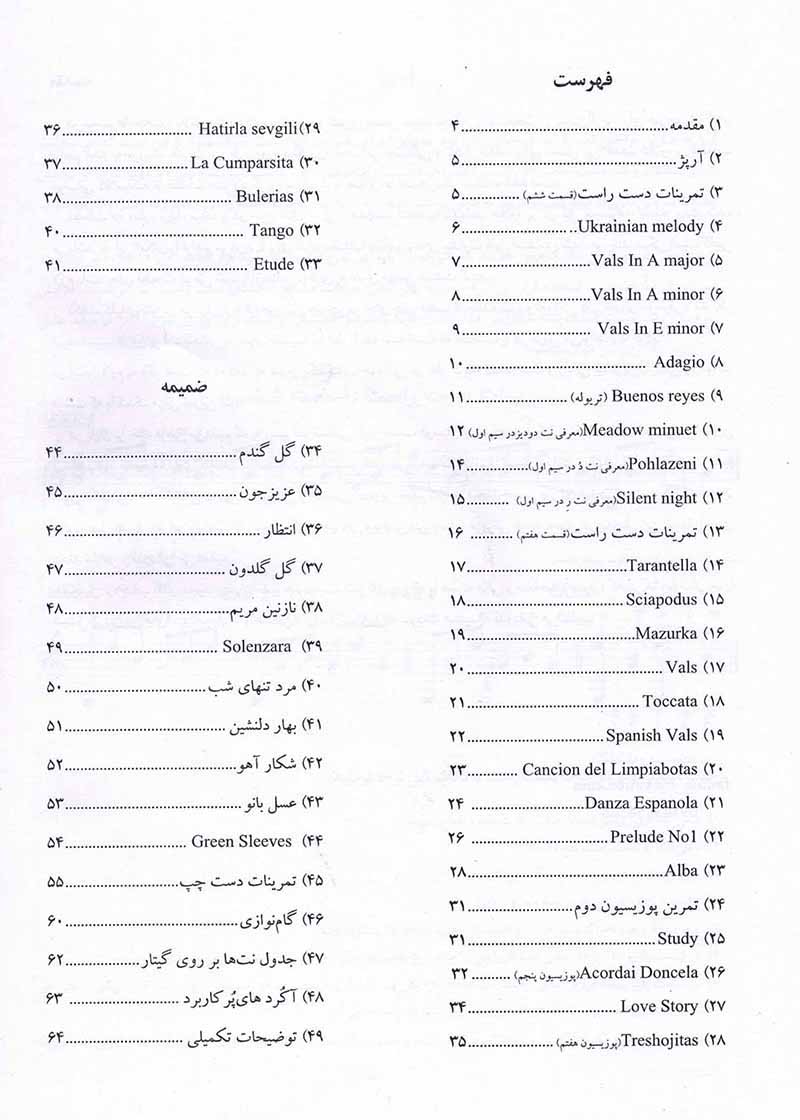 فهرست
۱) مقدمه..........۴
۲) آرپژ..........۵
۳) تمرینات دست راست (قسمت ششم)..........۵
۴) Ukrainian melody..........۶
۵) Vals In A major..........۷
۶) Vals In A minor..........۸
۷) Vals In E minor..........۹
۸) Adagio..........۱۰
۹) Buenos reyes (تریوله)..........۱۱
۱۰) Meadow minuet(معرفی نت دودیز در سیم اول) ۱۲
۱۱) Pohlazeni(معرفی نت دُ در سیم اول)..........۱۴
۱۲) Silent night(معرفی نت رِ در سیم اول)..........۱۵
۱۳) تمرینات دست راست (قسمت هفتم)..........۱۶
۱۴) Tarantella..........۱۷
۱۵) Sciapodus..........۱۸
۱۶) Mazurka..........۱۹
۱۷) Vals..........۲۰
۱۸) Toccata..........۲۱
۱۹) Spanish Vals..........۲۲
۲۰) Cancion del Limpiabotas..........۲۳
۲۱) Danza Espanola..........۲۴
۲۲) Prelude No1..........۲۶
۲۳) Alba..........۲۸
۲۴) تمرین پوزیسیون دوم..........۳۱
۲۵) Study..........۳۱
۲۶) Acordai Doncela(پوزیسیون پنجم)..........۳۲
۲۷) Love Story..........۳۴
۲۸) Treshojitas(پوزیسیون هفتم)..........۳۵
۲۹) Hatirla sevgili..........۳۶
۳۰) La Cumparsita..........۳۷
۳۱) Bulerias..........۳۸
۳۲) Tango..........۴۰
۳۳) Etude..........۴۱
ضمیمه
۳۴) گل گندم..........۴۴
۳۵) عزیزجون..........۴۵
۳۶) انتظار..........۴۶
۳۷) گل گلدون..........۴۷
۳۸) نازنین مریم..........۴۸
۳۹) Solenzara..........۴۹
۴۰) مرد تنهای شب..........۵۰
۴۱) بهار دلنشین..........۵۱
۴۲) شکار آهو..........۵۲
۴۳) عسل بانو..........۵۳
۴۴) Green Sleeves..........۵۴
۴۵) تمرینات دست چپ..........۵۵
۴۶) گام‌نوازی..........۶۰
۴۷) جدول نت‌ها بر روی گیتار..........۶۲
۴۸) آکُرد های پُر کاربرد..........۶۳
۴۹) توضیحات تکمیلی..........۶۴